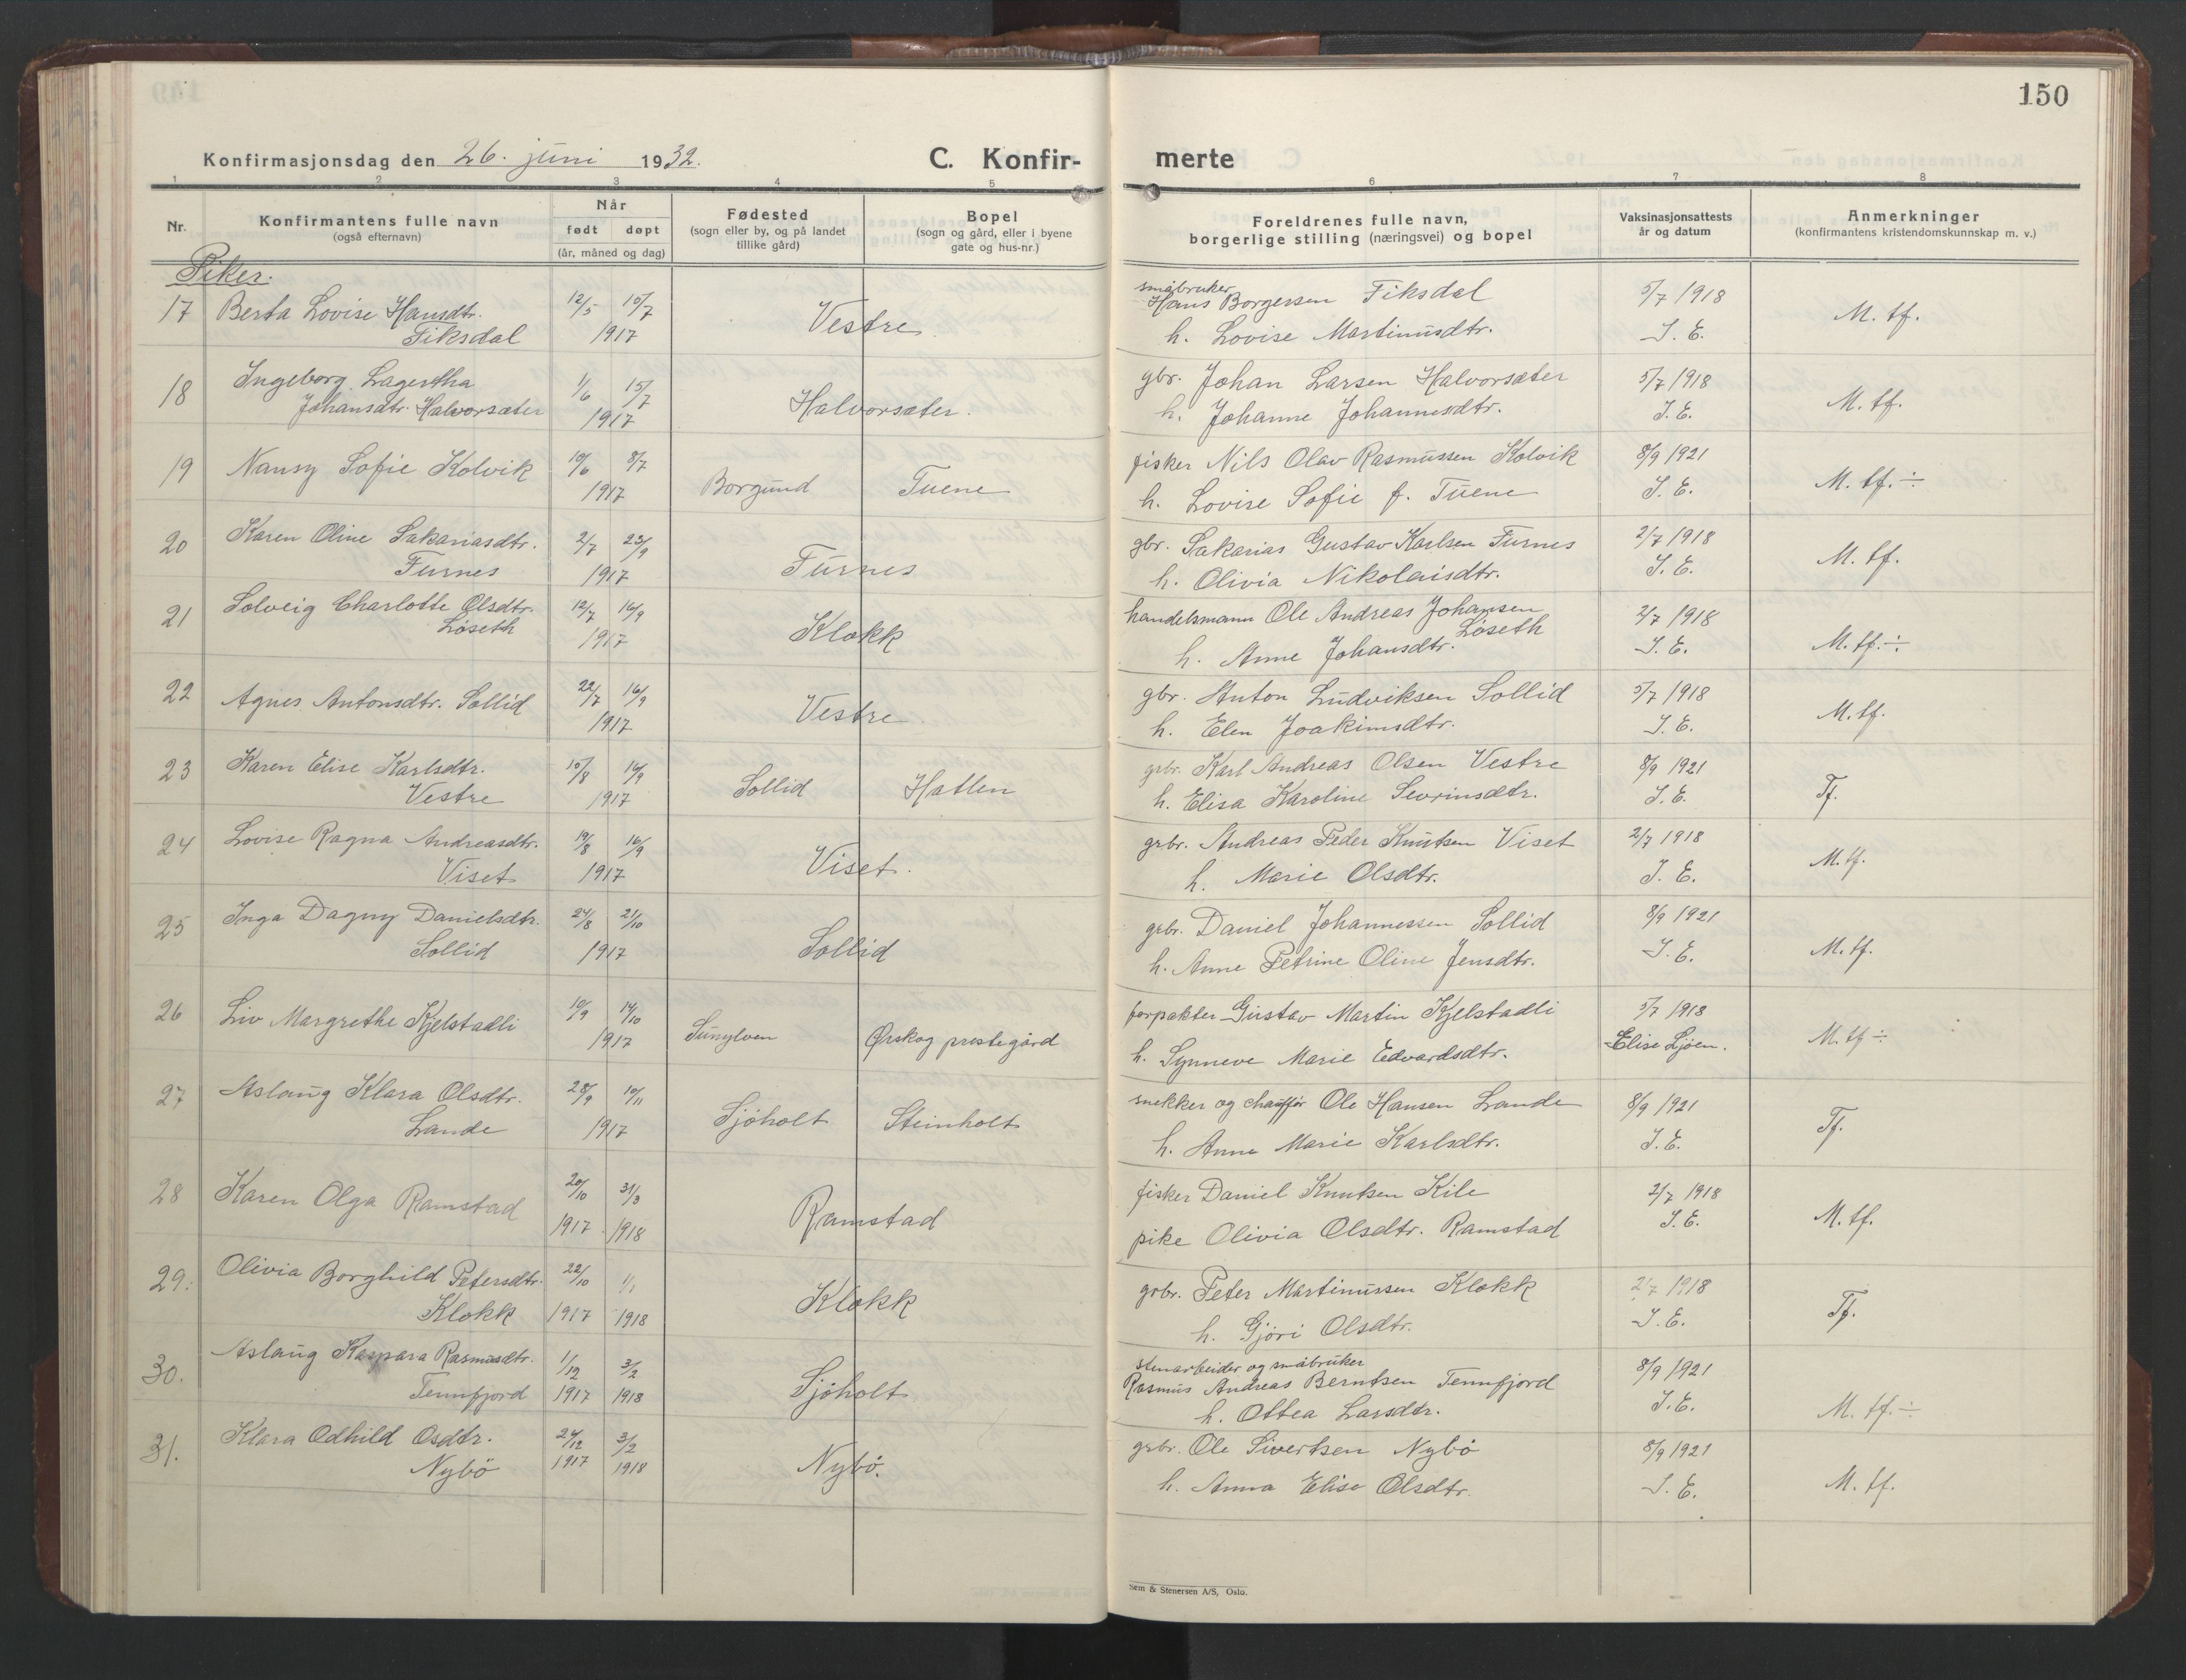 150
Konfirmasjonsdag den 26. juni 1932.
C. Konfir-
merte
1 2 3 4 5 6 7 8
Nr.
Konfirmantens fulle navn
(også efternavn)
Når
født døpt
(år, måned og dag)
Fødested
(sogn eller by, og på landet
tillike gård)
Bopel
(sogn og gård, eller i byene
gate og hus-nr.)
Foreldrenes fulle navn,
borgerlige stilling (næringsvei) og bopel
Vaksinasjonsattests
år og datum
Anmerkninger
(konfirmantens kristendomskunnskap m. v.)
Piker.
17 Berta Lovise Hansdtr.
Fiksdal
12/5 15/7
1917
Vestre
småbruker
Hans Borgersen Fiksdal
h. Lovise Martinusdtr.
5/7 1918
I. E.
M. tf.
18 Ingeborg Lagertha
Johansdtr. Halvorsæter
1/6 15/7
1917
Halvorsæter.
gbr. Johan Larsen Halvorsæter
h. Johanne Johannesdtr.
5/7 1918
I. E.
M. tf.
19 Nansy Sofie Kolvik
10/6 8/7
1917
Borgund
Tuene
fisker Nils Olav Rasmussen Kolvik
h. Lovise Sofie f. Tuene
8/9 1921
I. E.
M. tf. ÷
20 Karen Oline Sakariasdtr.
Furnes
2/7 23/9
1917
Furnes
gbr. Sakarias Gustav Karlsen Furnes
h. Olivia Nikolaisdtr.
2/7 1918
I. E.
M. tf.
21 Solveig Charlotte Olsdtr.
Løseth
12/7 16/9
1917
Klokk
handelsmann Ole Andreas Johansen
Løseth
h. Anne Johansdtr.
2/7 1918
I. E.
M. tf. ÷
22 Agnes Antonsdtr. Sollid
22/7 16/9
1917
Vestre
gbr. Anton Ludviksen Sollid
h. Elen Joakimsdtr.
5/7 1918
I. E.
M. tf.
23 Karen Elise Karlsdtr.
Vestre
15/8 16/9
1917
Sollid
Hatlen
grbr. Karl Andreas Olsen Vestre
h. Elisa Karoline Sevrinsdtr.
8/9 1921
I. E.
Tf.
24 Lovise Ragna Andreasdtr.
Viset
19/8 16/9
1917
Viset.
grbr. Andreas Peder Knutsen Viset
h. Marie Olsdtr.
2/7 1918
I. E.
M. tf.
25 Inga Dagny Danielsdtr.
Sollid
24/8 21/10
1917
Sollid
grbr. Daniel Johannessen Sollid
h. Anne Petrine Oline Jensdtr.
8/9 1921
I. E.
M. tf.
26 Liv Margrethe Kjelstadli
10/9 14/10
1917
Sunylven
Ørskog prestegård
forpakter Gustav Martin Kjelstadli
h. Synneve Marie Edvardsdtr.
5/7 1918
Elise Ljøen.
M. tf ÷
27 Aslaug Klara Olsdtr.
Lande
28/9 10/11
1917
Sjøholt
Steinholt
snekker og chauffør Ole Hansen Lande
h. Anna Marie Karlsdtr.
8/9 1921
I. E.
Tf.
28 Karen Olga Ramstad
20/10 31/3
1917 1918
Ramstad
fisker Daniel Knutsen Kile
pike Olivia Olsdtr. Ramstad
2/7 1918
I. E.
M. tf.
29. Olivia Borghild Petersdtr.
Klokk
22/10 1/1
1917 1918
Klokk
grbr. Peter Martinussen Klokk
h. Gjøri Olsdtr.
2/7 1918
I. E.
Tf.
30. Aslaug Kaspara Rasmusdtr.
Tennfjord
1/12 3/2
1917 1918
Sjøholt
stenarbeider og småbruker
Rasmus Andreas Berntsen Tennfjord
h. Ottea Larsdtr.
8/9 1921
I. E.
M. tf. ÷
31. Klara Odhild Osdtr.
Nybö
24/12 3/2
1917 1918
Nybö.
grbr. Ole Sivertsen Nybö
h. Anna Elise Olsdtr.
8/9 1921
I. E.
M. tf.
Sem & Stenersen A/S, Oslo.